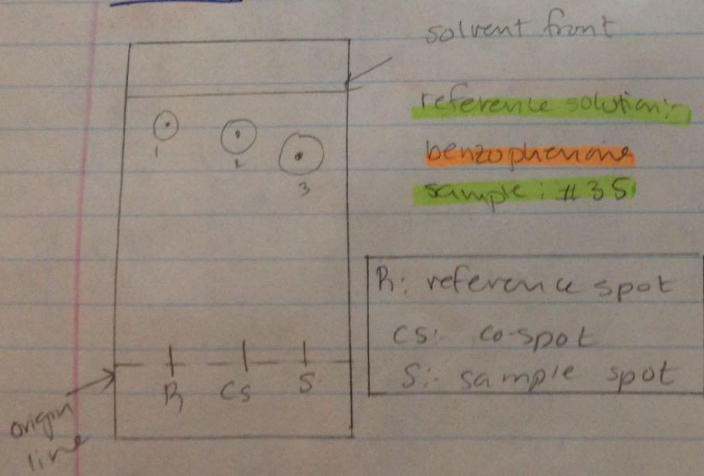 solvent front
reference solution:-
benzophenone
sample: #35
1
2
3
R: reference spot
CS:- co-spot
S:- sample spot
R CS S
origin
line